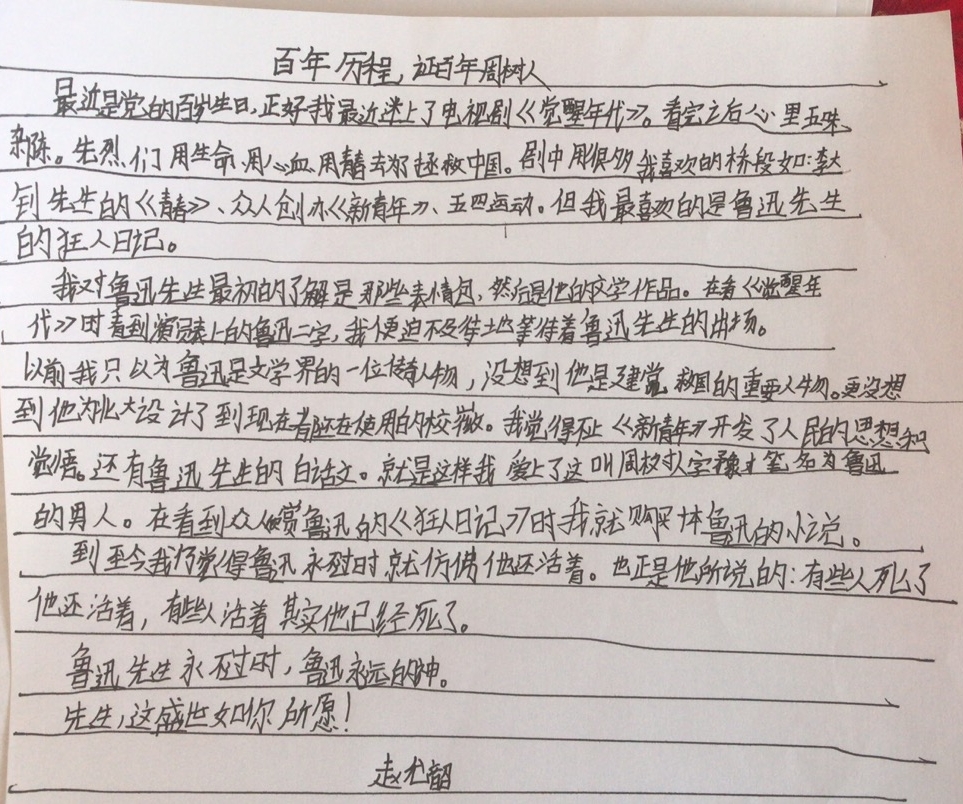 百年历程,证百年周树人
最近是党的百岁生日,正好我最近迷上了电视剧《觉醒年代》。看完之后心里五味
杂陈。先烈们用生命,用心血,用青春去拯救中国。剧中用很多我喜欢的桥段如:李大
钊先生的《青春》、众人创办《新青年》、五四运动。但我最喜欢的是鲁迅先生
的狂人日记。
我对鲁迅先生最初的了解是那些表情包,然后是他的文学作品。在看《觉醒年
代》时看到演员表上的鲁迅二字,我便迫不及待地等待着鲁迅先生的出场。
以前我只以为鲁迅是文学界的一位传奇人物,没想到他是建党救国的重要人物。更没想
到他为北大设计了到现在都还在使用的校徽。我觉得不止《新青年》开发了人民的思想和
觉悟。还有鲁迅先生的白话文。就是这样我爱上了这叫周树人字豫才笔名为鲁迅
的男人。在看到众人赏鲁迅的《狂人日记》时我就购买本鲁迅的小说。
到至今我仍觉得鲁迅永不过时就仿佛他还活着。也正是他所说的:有些人死了
他还活着,有些人活着其实他已经死了。
鲁迅先生永不过时,鲁迅永远的神。
先生,这盛世如你所愿!
赵尤韶